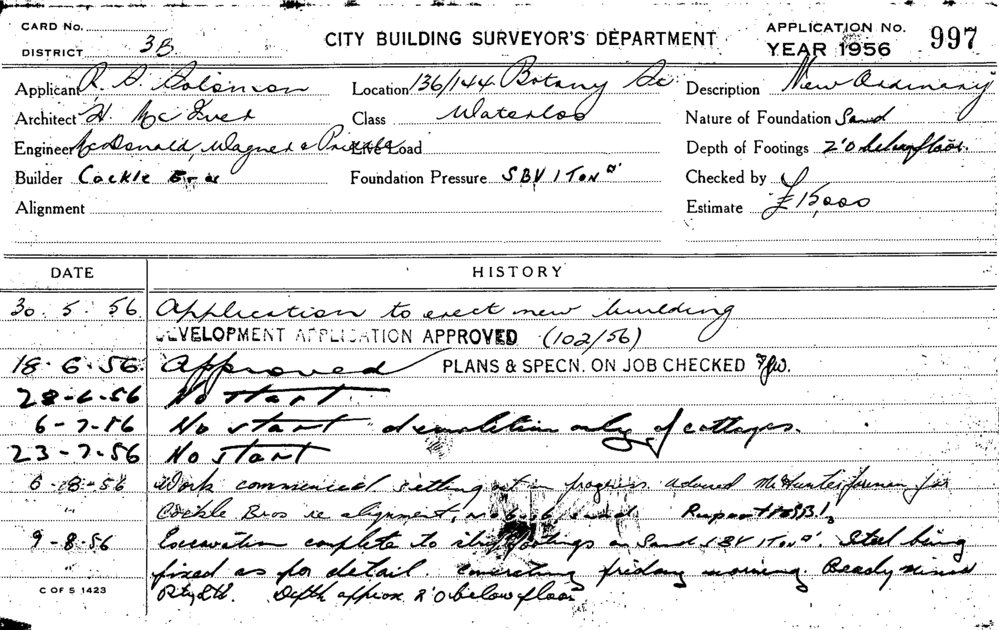 CARD No.
DISTRICT 3B
CITY BUILDING SURVEYOR'S DEPARTMENT
APPLICATION No. 997
YEAR 1956
Applicant R. S. Solomon
Location 136/144 Botany
Description New Ordinary
Architect H. McIver
Class Waterloo
Nature of Foundation Sand
Engineer McDonald, Wagner & Priddle
Live Load
Depth of Footings 2'0 below floor.
Builder Cockle Bros
Foundation Pressure SBV 1 Ton
Checked by
Alignment
Estimate £15,000
DATE HISTORY
30. 5. 56. Application to erect new building
DEVELOPMENT APPLICATION APPROVED (102/56)
18-6-56. Approved PLANS & SPECN. ON JOB CHECKED
28-6-56 No start
6-7-56 No start demolition only of cottages.
23-7-56 No start
6-8-56 Work commenced setting out in progress advised Mr Hunter foreman for
" Cockle Bros re alignment,
9-8-56 Excavation complete to footings on Sand SBV 1 Ton. Steel being
fixed as per detail. concreting friday morning. Ready Mixed
Depth approx 2'0 below floor
C OF S 1423